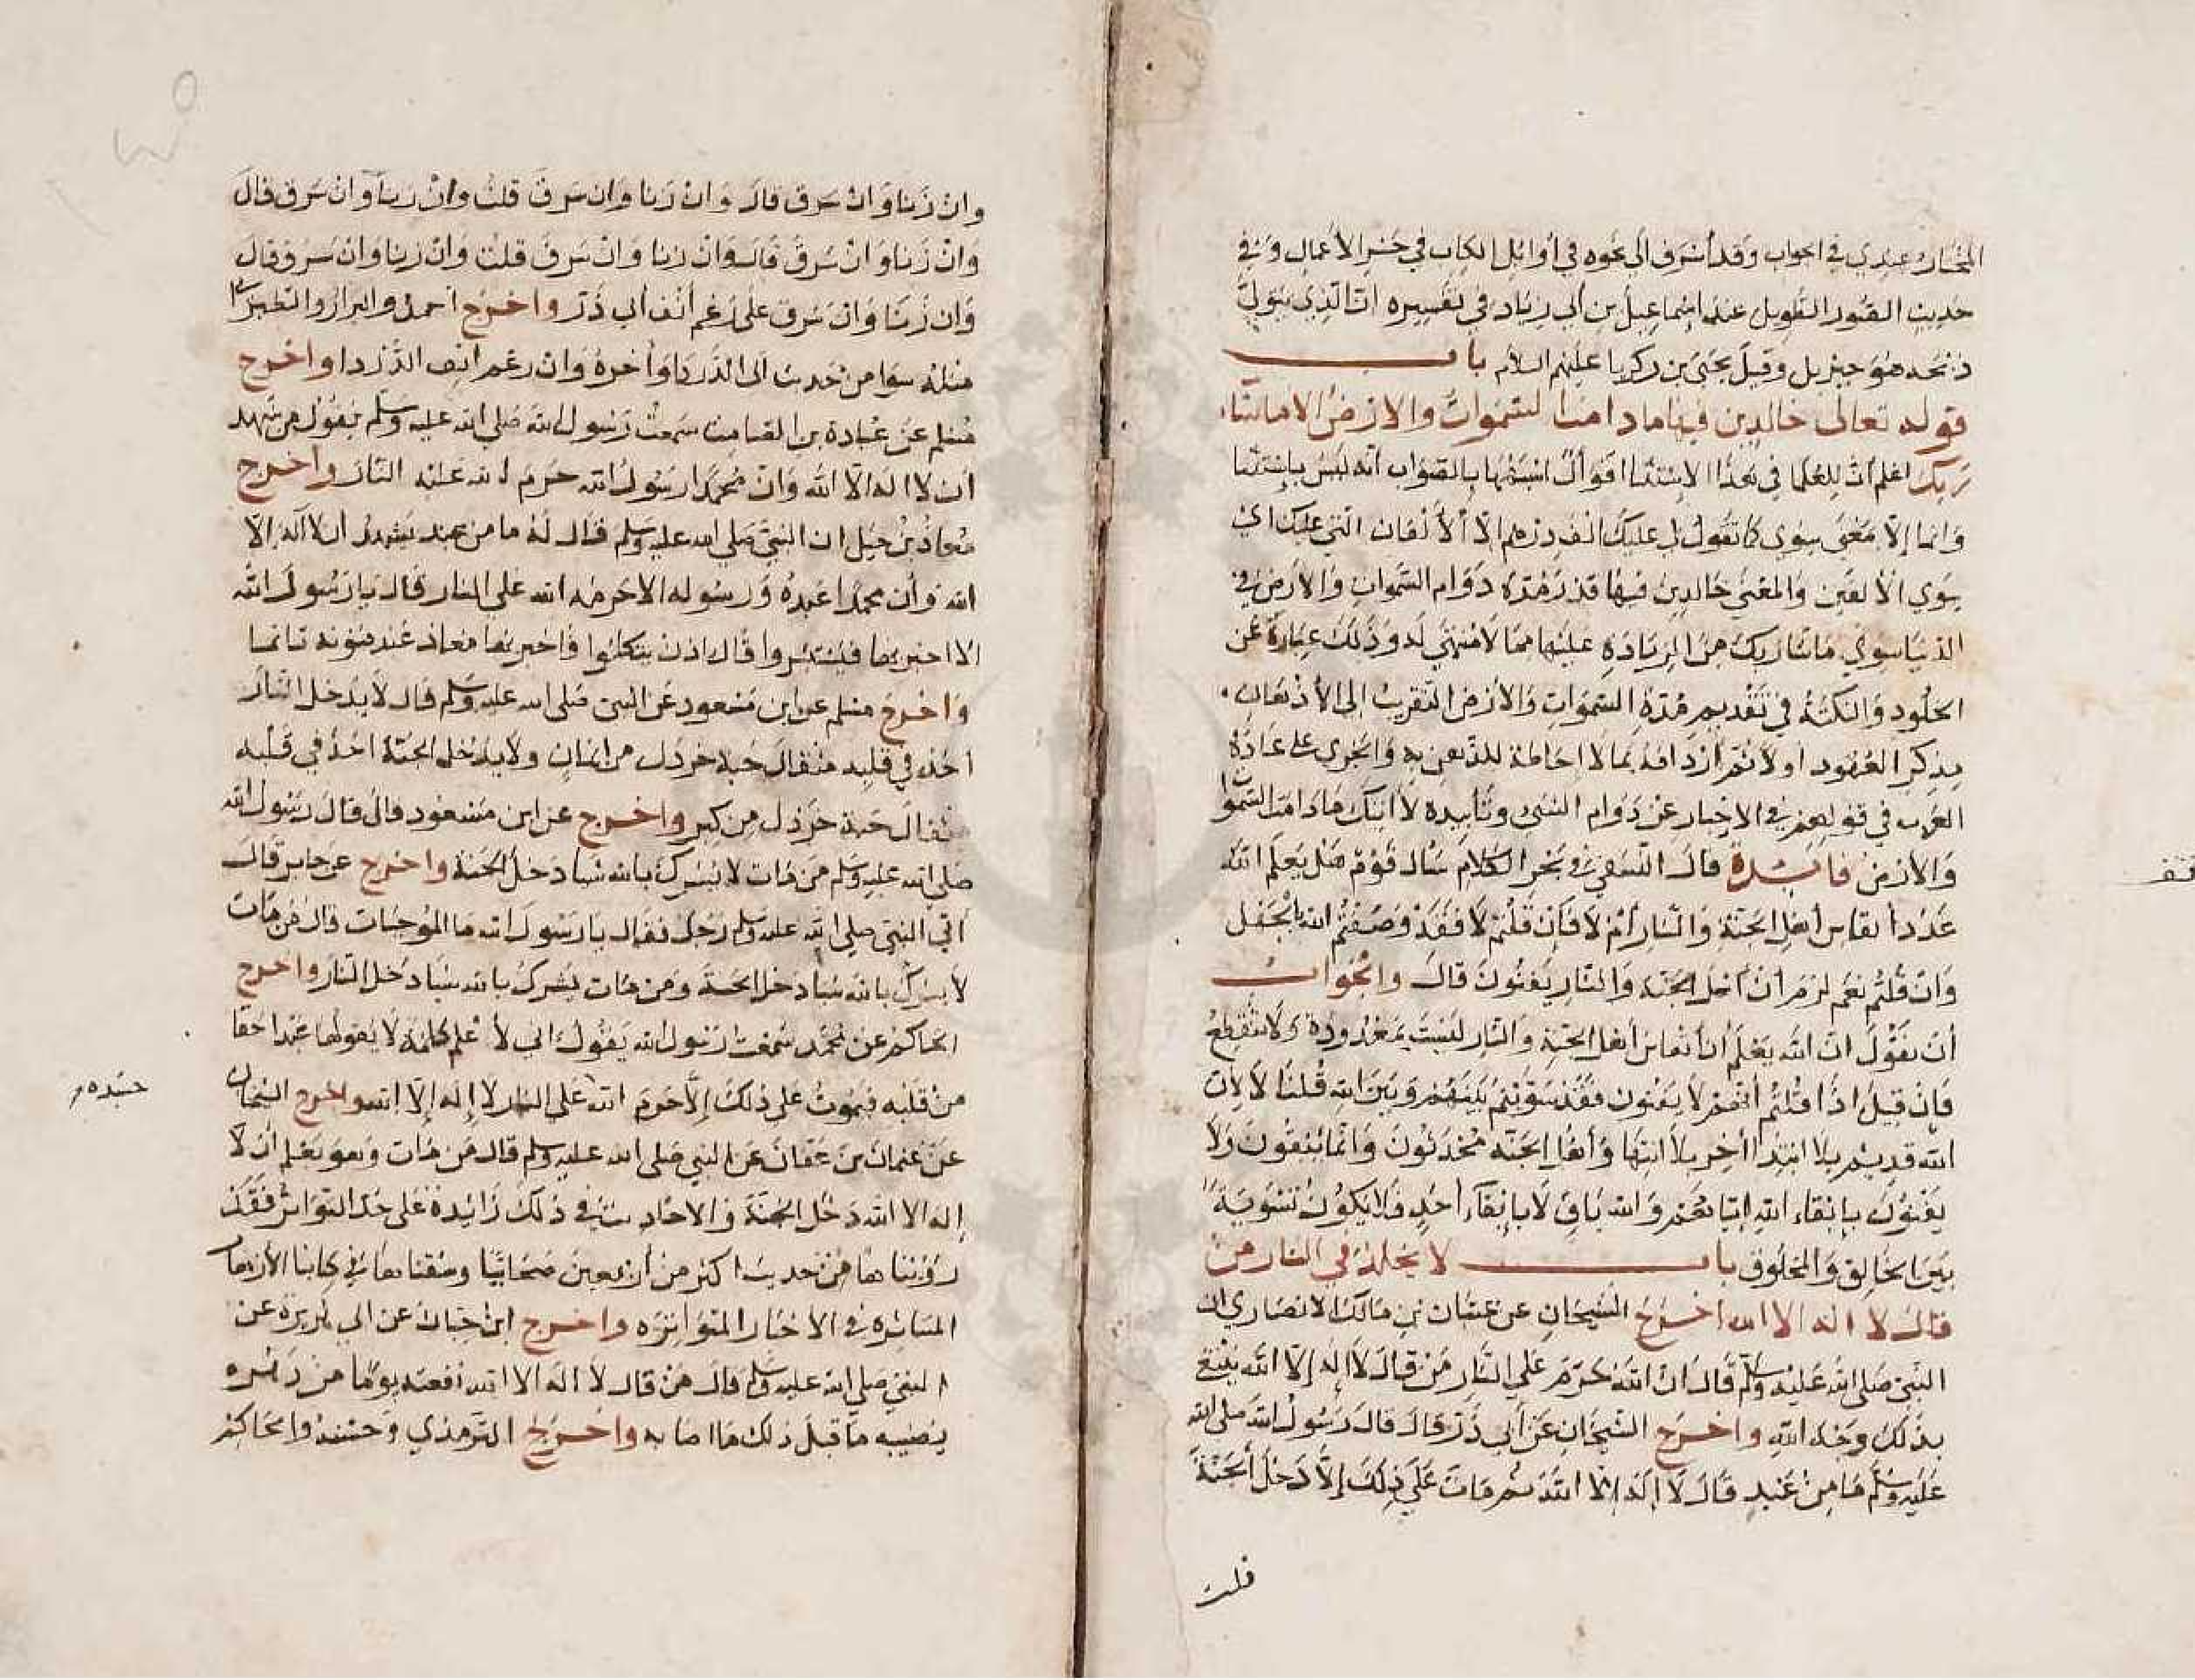 المختار عندي في الجواب وقد أشرف الى نحوه في أوائل الكتاب في حشر الأعمال وفي
حديث الصور الطويل عند اسماعيل بن أبي زياد في تفسيره ان الذي يتولى
ذبحه هو جبريل وقيل يحيى بن زكريا عليهم السلام باب
قوله تعالى خالدين فيها ما دامت السموات والارض الا ما شاء
ربك اعلم أن للعلما في هذا الاستثنا اقوالا اشبهها بالصواب أنه ليس باستثنا
وانما إلا بمعنى سوى كما تقول لي عليك الف درهم الا الألفان التي عليك اي
سوى الألفين والمعنى خالدين فيها قدر مدة دوام السموات والأرض في
الدنيا سوى ما شا ربك من الزيادة عليها مما لا منتهى له وذلك عبارة عن
الخلود والنكتة في تقديم مدة السموات والأرض التقريب إلى الأذهان
بذكر العهود أولا ثم أردافه بما لا احاطة للذهن به والجري على عادة
العرب في قولهم في الاخبار عن دوام الشى وتأبيده لا اتيك ما دامت السموات
والأرض فائدة قال النسفي في بحر الكلام سال قوم هل يعلم الله
عدد أنفاس أهل الجنة والنار أم لا فإن قلتم لا فقد وصفتم الله بالجهل
وان قلتم نعم لزم أن أهل الجنة والنار يفنون قال والجواب
أن نقول ان الله يعلم أن أنفاس أهل الجنة والنار ليست بمعدودة ولا تنقطع
فإن قيل اذا قلتم أنهم لا يفنون فقد سويتم بينهم وبين الله قلنا لا لأن
الله قديم بلا ابتدا أخر بلا انتها وأهل الجنة محدثون وانما يبقون ولا
يفنون بإبقاء الله إياهم والله باق لا بإبقاء أحد فلا يكون تسوية
بين الخالق والمخلوق باب لا يخلد في النار من
قال لا اله الا الله اخرج الشيخان عن عتبان بن مالك الانصاري ان
النبي صلى الله عليه وسلم قال ان الله حرم على النار من قال لا إله إلا الله يبتغي
بذلك وجه الله واخرج الشيخان عن أبي ذر قال قال رسول الله صلى الله
عليه وسلم ما من عبد قال لا اله الا الله ثم مات على ذلك إلا دخل الجنة
قلت
وان زنا وان سرق قال وان زنا وان سرق قلت وان زنا وان سرق قال
وان زنا وان سرق قال وان زنا وان سرق قلت وان زنا وان سرق قال
وان زنا وان سرق على رغم أنف أبي ذر واخرج احمد والبزار والطبراني
مثله سوا من حديث ابى الدردا واخره وان رغم انف الدردا واخرج
مسلم عن عبادة بن الصامت سمعت رسول الله صلى الله عليه وسلم يقول من شهد
أن لا اله الا الله وان محمدا رسول الله حرم الله عليه النار واخرج
معاذ بن جبل ان النبي صلى الله عليه وسلم قال له ما من عبد يشهد أن لا اله إلا
الله وأن محمدا عبده ورسوله الا حرمه الله على النار قال يا رسول الله
الا اخبر بها فيستبشروا قال اذن يتكلوا فاخبر بها معاذ عند موته تاثما
واخرج مسلم عن ابن مسعود عن النبي صلى الله عليه وسلم قال لا يدخل النار
احد في قلبه مثقال حبة خردل من ايمان ولا يدخل الجنة احد في قلبه
مثقال حبة خردل من كبر واخرج عن ابن مسعود قال قال رسول الله
صلى الله عليه وسلم من مات لا يشرك بالله شيا دخل الجنة واخرج عن جابر قال
اتى النبي صلى الله عليه وسلم رجل فقال يا رسول الله ما الموجبات قال من مات
لا يشرك بالله شيا دخل الجنة ومن مات يشرك بالله شيا دخل النار واخرج
الحاكم عن سمعت رسول الله يقول اني لأعلم كلمة لا يقولها عبد احقا
من قلبه فيموت على ذلك إلا حرم الله على النار لا إله إلا الله واخرج الشيخان
عن عثمان بن عفان عن النبي صلى الله عليه وسلم قال من مات وهو يعلم ان لا
إله الا الله دخل الجنة والاحاديث في ذلك زائدة على حد التواتر فقد
رويناها من حديث اكثر من أربعين صحابيا وسقناها في كتابنا الأزهار
المتناثرة في الاخبار المتواترة واخرج ابن حبان عن ابي هريرة عن
النبي صلى الله عليه وسلم قال من قال لا اله الا الله نفعته يوما من دهره
يصيبه ما قبل ذلك ما اصابه واخرج الترمذي وحسنه والحاكم